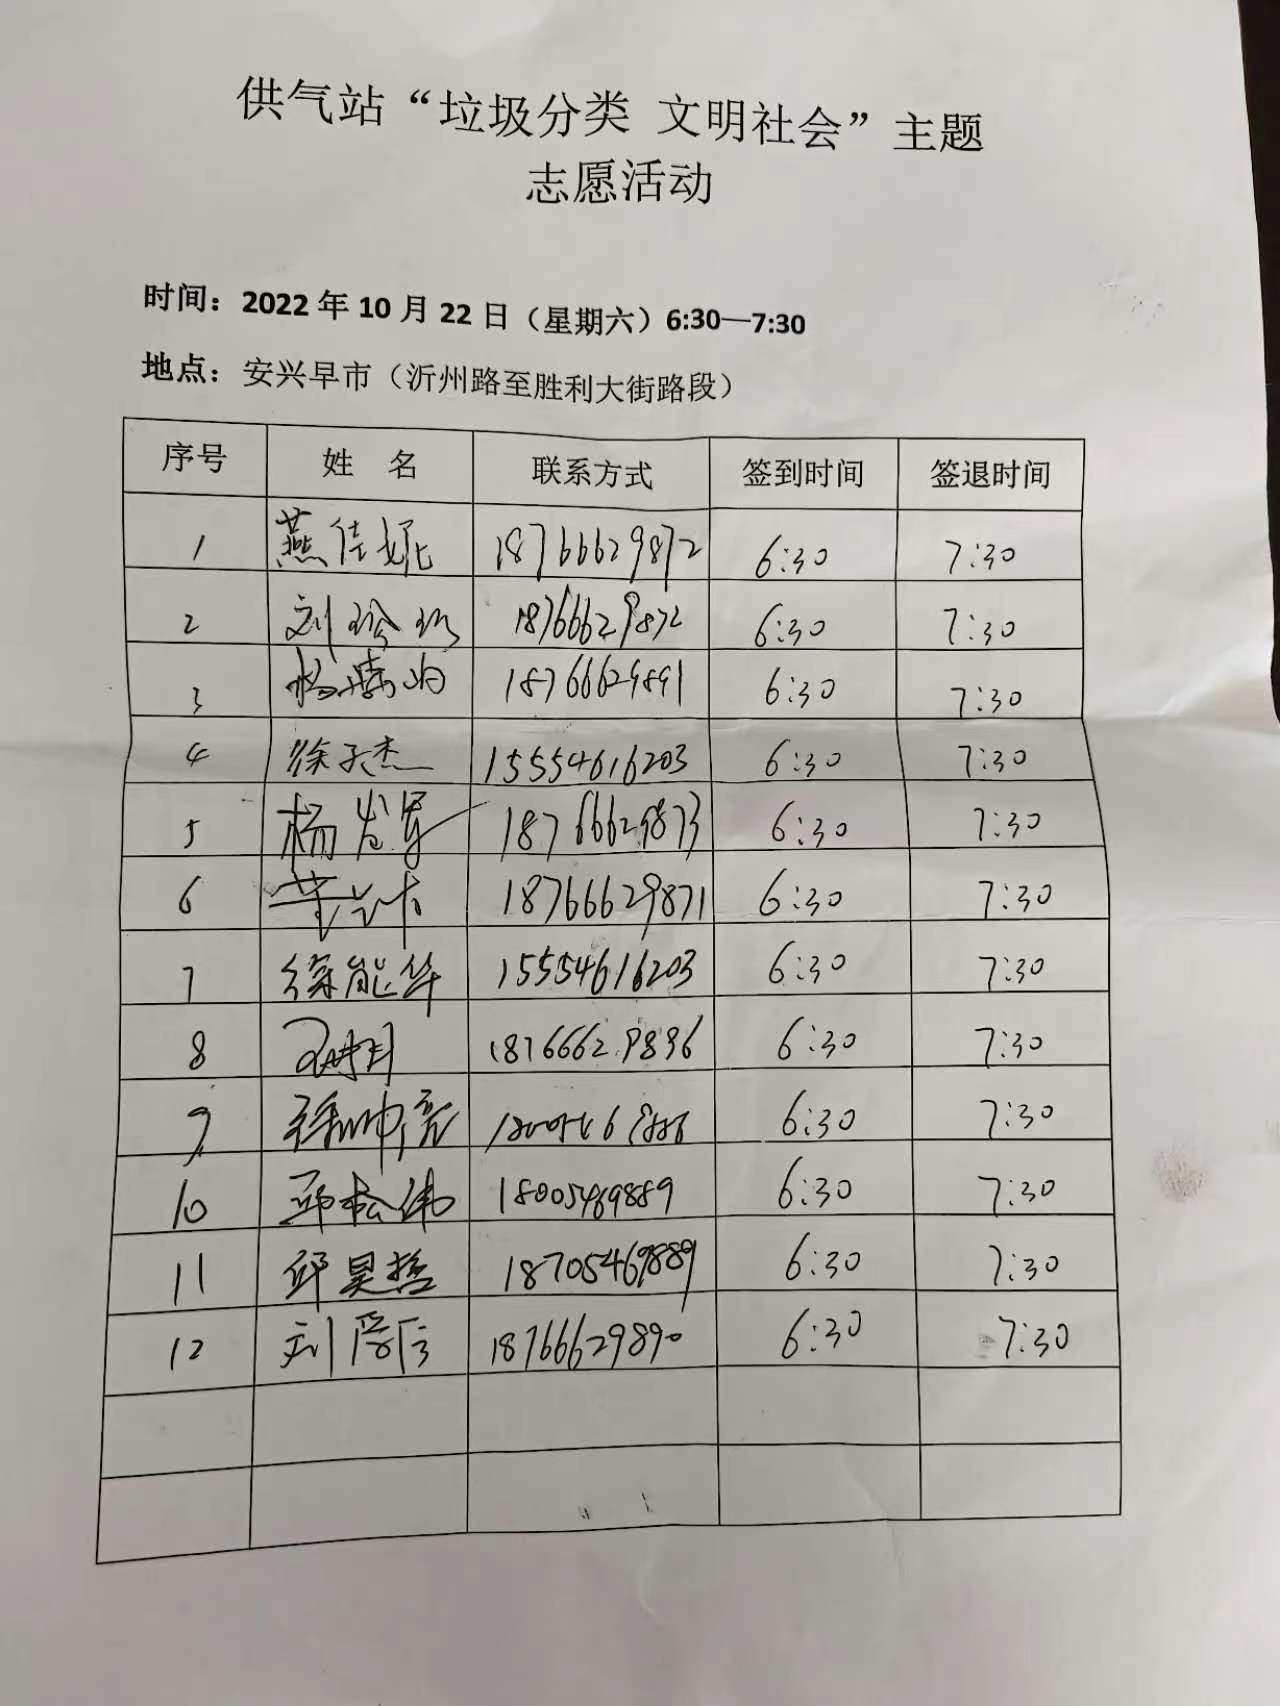 供气站“垃圾分类 文明社会”主题
志愿活动
时间：2022年10月22日（星期六）6:30—7:30
地点：安兴早市（沂州路至胜利大街路段）
序号 姓 名 联系方式 签到时间 签退时间
1 燕佳妮 18766629872 6:30 7:30
2 刘玲玲 18766629872 6:30 7:30
3 杨 18766629891 6:30 7:30
4 徐子杰 15554616203 6:30 7:30
5 杨发军 18766629873 6:30 7:30
6 18766629871 6:30 7:30
7 徐能华 15554616203 6:30 7:30
8 18766629896 6:30 7:30
9 6:30 7:30
10 邱松伟 18005469889 6:30 7:30
11 邱昊哲 18705469889 6:30 7:30
12 刘 18766629890 6:30 7:30